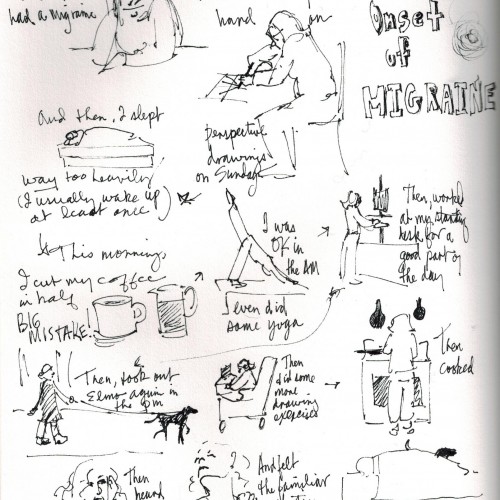 had a migraine
hand on
Onset
of
MIGRAINE
And then, I slept
way too heavily
(I usually wake up
at least once)
perspective
drawings
on Sunday
This morning,
I cut my coffee
in half
BIG
MISTAKE!
I was
OK in
the AM
Even did
some yoga
Then, worked
at my standing
desk for a
good part of
the day
Then, took out
Elmo again in
the pm
Then
did some
more
drawing
exercises
Then
cooked
Then
heard
And felt
the familiar